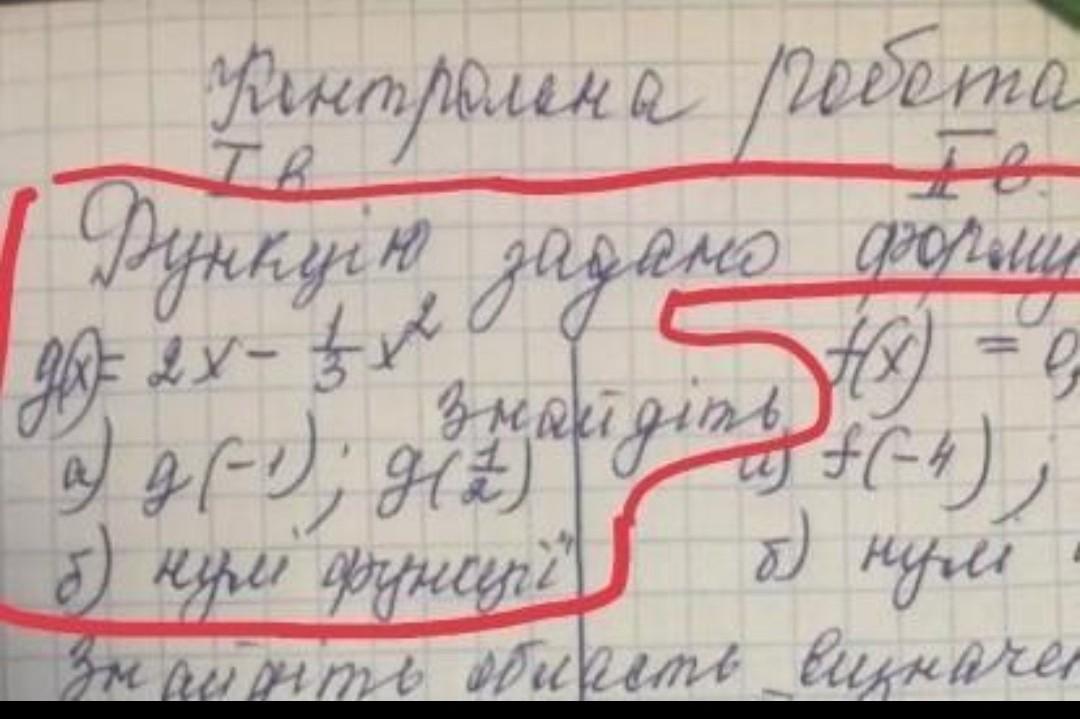 Контрольна робота
I в
II в.
Функцію задано форму
g(x) = 2x - 1/3 x²
f(x) = 0,
Знайдіть
а) g(-1); g(1/2)
а) f(-4);
б) нулі функції
б) нулі
Знайдіть область визначен